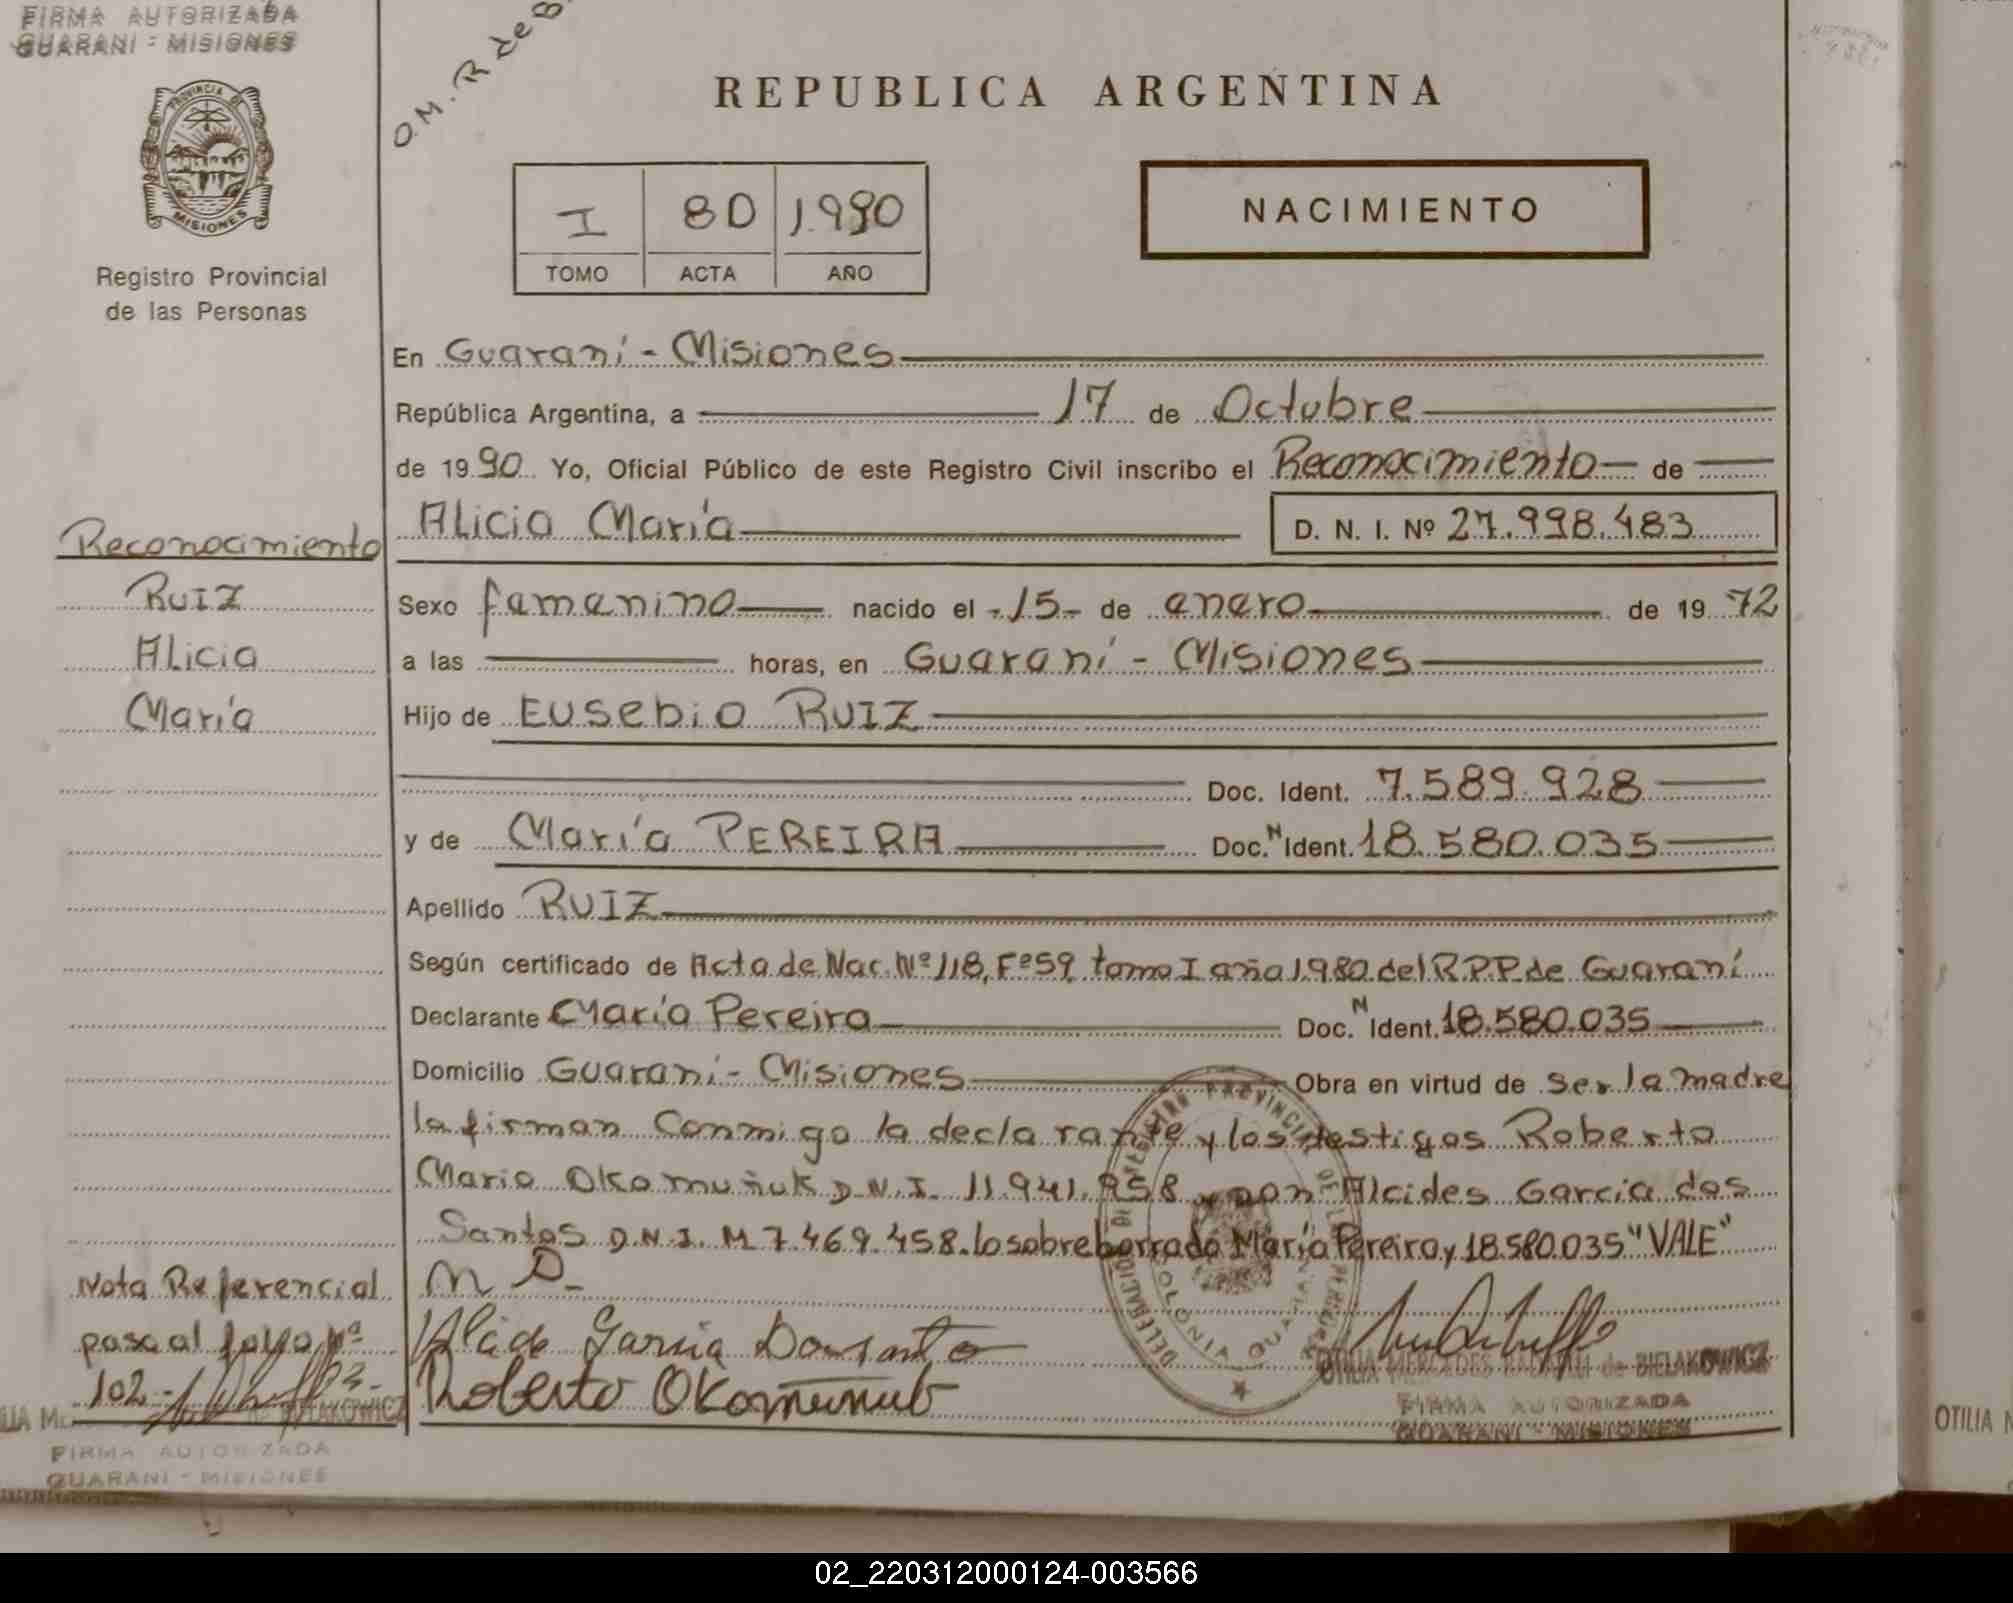 FIRMA AUTORIZADA
GUARANI - MISIONES
O.M. R de B
PROVINCIA DE
MISIONES
Registro Provincial
de las Personas
REPUBLICA ARGENTINA
I 80 1.990
TOMO ACTA AÑO
NACIMIENTO
En Guaraní - Misiones
República Argentina, a 17 de Octubre
de 19 90 Yo, Oficial Público de este Registro Civil inscribo el Reconocimiento de
Alicia María D. N. I. Nº 27.998.483
Sexo femenino nacido el -15- de enero de 19 72
a las horas, en Guaraní - Misiones
Hijo de Eusebio RUIZ
Doc. Ident. 7.589.928
y de María PEREIRA Doc. N Ident. 18.580.035
Apellido RUIZ
Según certificado de Acta de Nac. Nº 118, Fº 59, tomo I año 1.980 del R.P.P. de Guaraní
Declarante María Pereira Doc. N Ident. 18.580.035
Domicilio Guaraní - Misiones Obra en virtud de ser la madre
la firman conmigo la declarante y los testigos Roberto
Mario Okomuñuk D.N.I. 11.941.958 y don Alcides Garcia dos
Santos D.N.I. M 7.469.458. lo sobreborrado María Pereira y 18.580.035 "VALE"
M D.
Alcide Garcia Dos Santo
Roberto Okomuñuk
Reconocimiento
RUIZ
Alicia
María
Nota Referencial
pasa al folio Nº
102
BIELAKOWICZ
FIRMA AUTORIZADA
GUARANI - MISIONES
OTILIA MERCEDES de BIELAKOWICZ
FIRMA AUTORIZADA
GUARANI - MISIONES
OTILIA
02_220312000124-003566